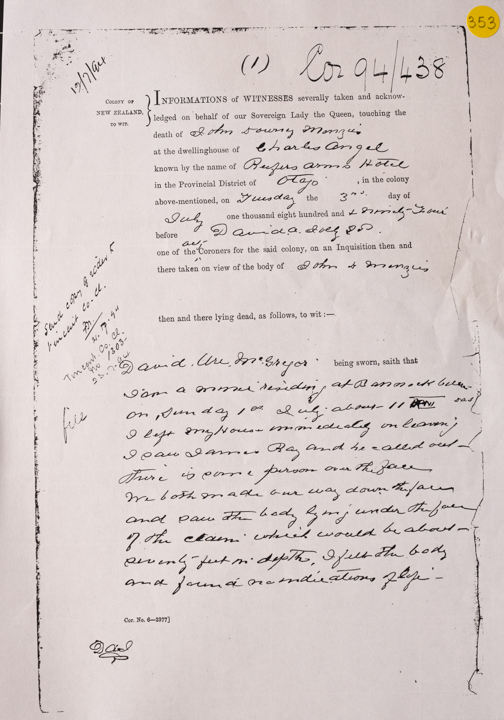 353
12/7/94
(1) Cor 94/438
COLONY OF
NEW ZEALAND,
TO WIT.
INFORMATIONS OF WITNESSES severally taken and acknow-
ledged on behalf of our Sovereign Lady the Queen, touching the
death of John Downey Menzies
at the dwellinghouse of Charles Angel
known by the name of Arms Hotel
in the Provincial District of Otago, in the colony
above-mentioned, on Tuesday the 3rd. day of
July one thousand eight hundred and Ninety-Four
before David A. Jolly
one of the Coroners for the said colony, on an Inquisition then and
there taken on view of the body of John D Menzies
Send copy of rider to
Vincent Co. Cl.
12.7.94
Vincent Co. Cl.
No 1303
23.7.94
file
then and there lying dead, as follows, to wit:—
David Ure McGregor being sworn, saith that
I am a miner residing at Bannockburn
on Sunday 1st July about 11
I left my House immediately on leaving
I saw James Ray and he called out
there is some person over the face
We both made our way down the face
and saw the body lying under the face
of the claim which would be about
seventy feet in depth, I felt the body
and found no indications of life
Cor. No. 6—2977]